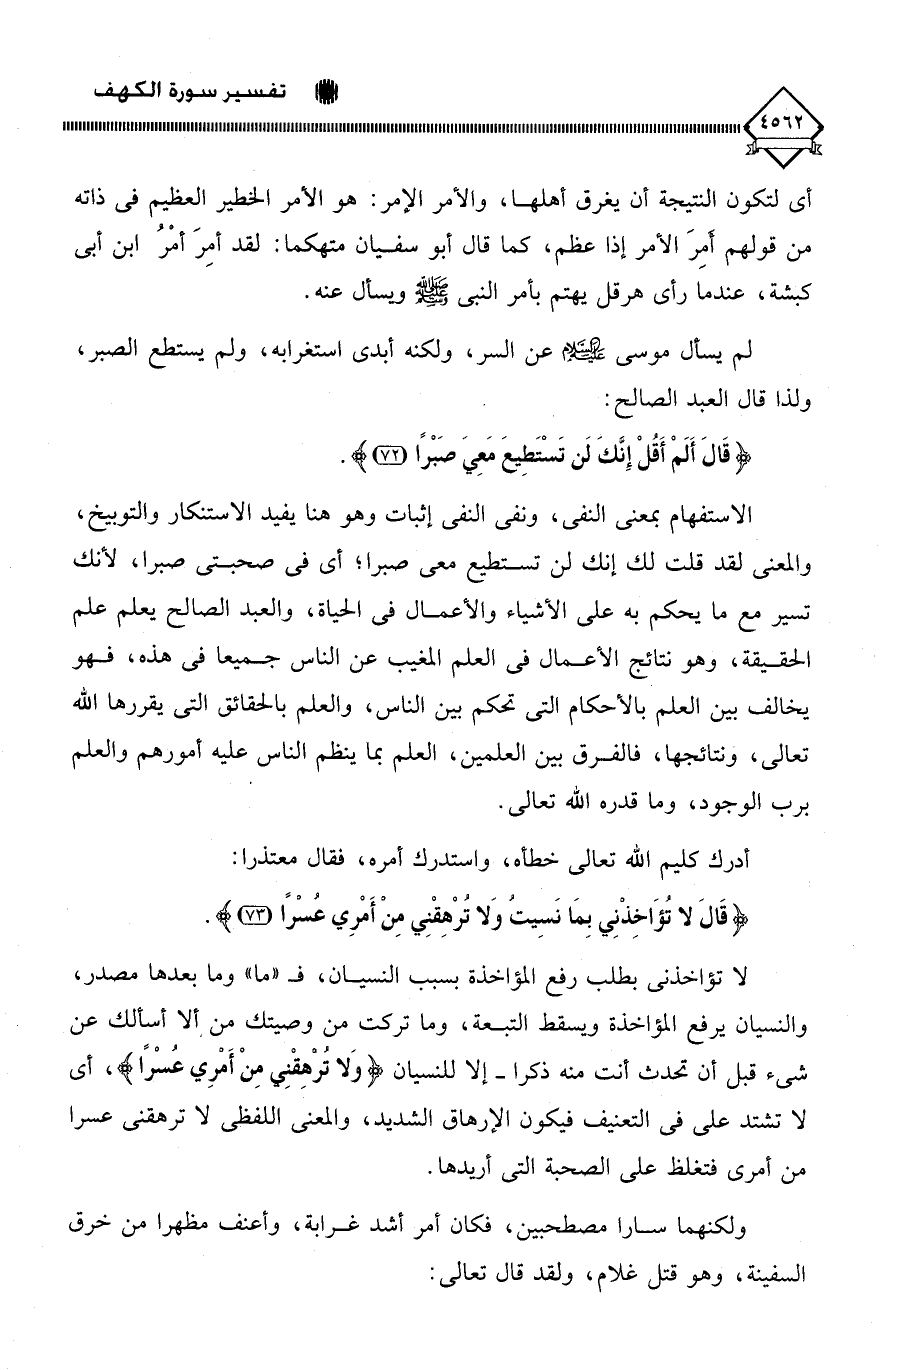 تفسير سورة الكهف
٤٥٦٢
أى لتكون النتيجة أن يغرق أهلها، والأمر الإمر: هو الأمر الخطير العظيم فى ذاته
من قولهم أَمِرَ الأمر إذا عظم، كما قال أبو سفيان متهكما: لقد أمِرَ أمْرُ ابن أبى
كبشة، عندما رأى هرقل يهتم بأمر النبى ﷺ ويسأل عنه.
لم يسأل موسى عليه السلام عن السر، ولكنه أبدى استغرابه، ولم يستطع الصبر،
ولذا قال العبد الصالح:
﴿قَالَ أَلَمْ أَقُلْ إِنَّكَ لَن تَسْتَطِيعَ مَعِيَ صَبْرًا (٧٢)﴾.
الاستفهام بمعنى النفى، ونفى النفى إثبات وهو هنا يفيد الاستنكار والتوبيخ،
والمعنى لقد قلت لك إنك لن تستطيع معى صبرا؛ أى فى صحبتى صبرا، لأنك
تسير مع ما يحكم به على الأشياء والأعمال فى الحياة، والعبد الصالح يعلم علم
الحقيقة، وهو نتائج الأعمال فى العلم المغيب عن الناس جميعا فى هذه، فهو
يخالف بين العلم بالأحكام التى تحكم بين الناس، والعلم بالحقائق التى يقررها الله
تعالى، ونتائجها، فالفرق بين العلمين، العلم بما ينظم الناس عليه أمورهم والعلم
برب الوجود، وما قدره الله تعالى.
أدرك كليم الله تعالى خطأه، واستدرك أمره، فقال معتذرا:
﴿قَالَ لا تُؤَاخِذْنِي بِمَا نَسِيتُ وَلا تُرْهِقْنِي مِنْ أَمْرِي عُسْرًا (٧٣)﴾.
لا تؤاخذنى بطلب رفع المؤاخذة بسبب النسيان، فـ «ما» وما بعدها مصدر،
والنسيان يرفع المؤاخذة ويسقط التبعة، وما تركت من وصيتك من ألا أسألك عن
شىء قبل أن تحدث أنت منه ذكرا ـ إلا للنسيان ﴿وَلا تُرْهِقْنِي مِنْ أَمْرِي عُسْرًا﴾، أى
لا تشتد على فى التعنيف فيكون الإرهاق الشديد، والمعنى اللفظى لا ترهقنى عسرا
من أمرى فتغلظ على الصحبة التى أريدها.
ولكنهما سارا مصطحبين، فكان أمر أشد غرابة، وأعنف مظهرا من خرق
السفينة، وهو قتل غلام، ولقد قال تعالى: